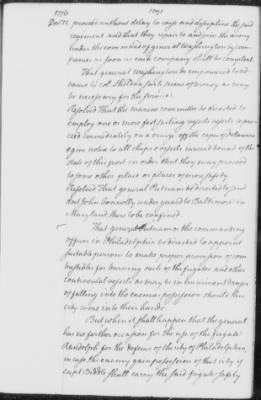 1776
Dec 12. proceed without delay to raise and discipline the said
regiment and that they repair to and join the army
under the command of general Washington by com-
panies as soon as each company shall be compleat.
That general Washington be empowered to ad-
vance to col. such sums of money as may
be necessary for this service.
Resolved That the marine committee be directed to
employ one or more fast sailing vessels to pro
ceed immediately on a cruise off the capes of delaware
& give notice to all ships & vessels inward bound of the
state of this port in order that they may proceed
to some other place or places of more safety.
Resolved That general Putnam be directed to send
doct John Connolly under guard to Baltimore in
Maryland there to be confined
That general Putnam or the commanding
officer in Philadelphia be directed to appoint
suitable persons to make proper provision of com
bustibles for burning such of the frigates and other
continental vessels as may be in imminent danger
of falling into the enemies possession should this
city come into their hands.
But when it shall happen that the general
has no farther occasion for the use of the frigate
Randolph for the defence of the city of Philadelphia,
in case the enemy gain possession of that city of
capt Biddle shall carry the said frigate safely